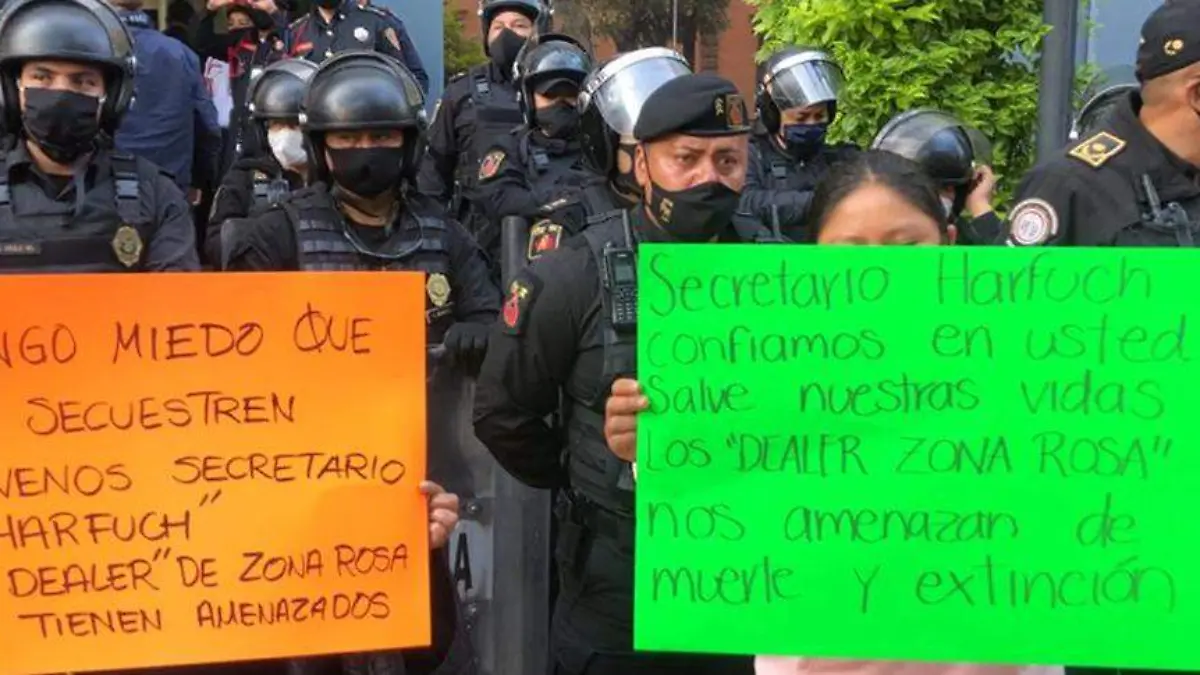 NGO MIEDO QUE
SECUESTREN
VENOS SECRETARIO
HARFUCH"
DEALER" DE ZONA ROSA
TIENEN AMENAZADOS
Secretario Harfuch
confiamos en usted
Salve nuestras vidas
Los "DEALER ZONA ROSA"
nos amenazan de
muerle y extinción
A